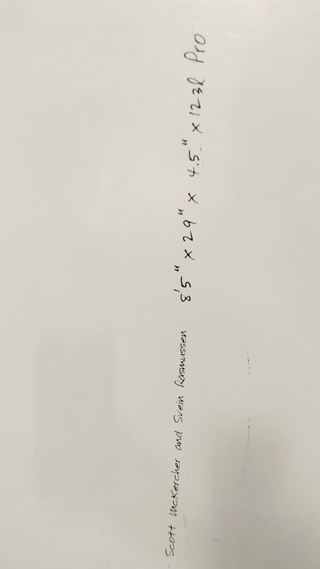 Scott McKercher and Svein Rasmussen 8'5" x 29" x 4.5" x 123l Pro